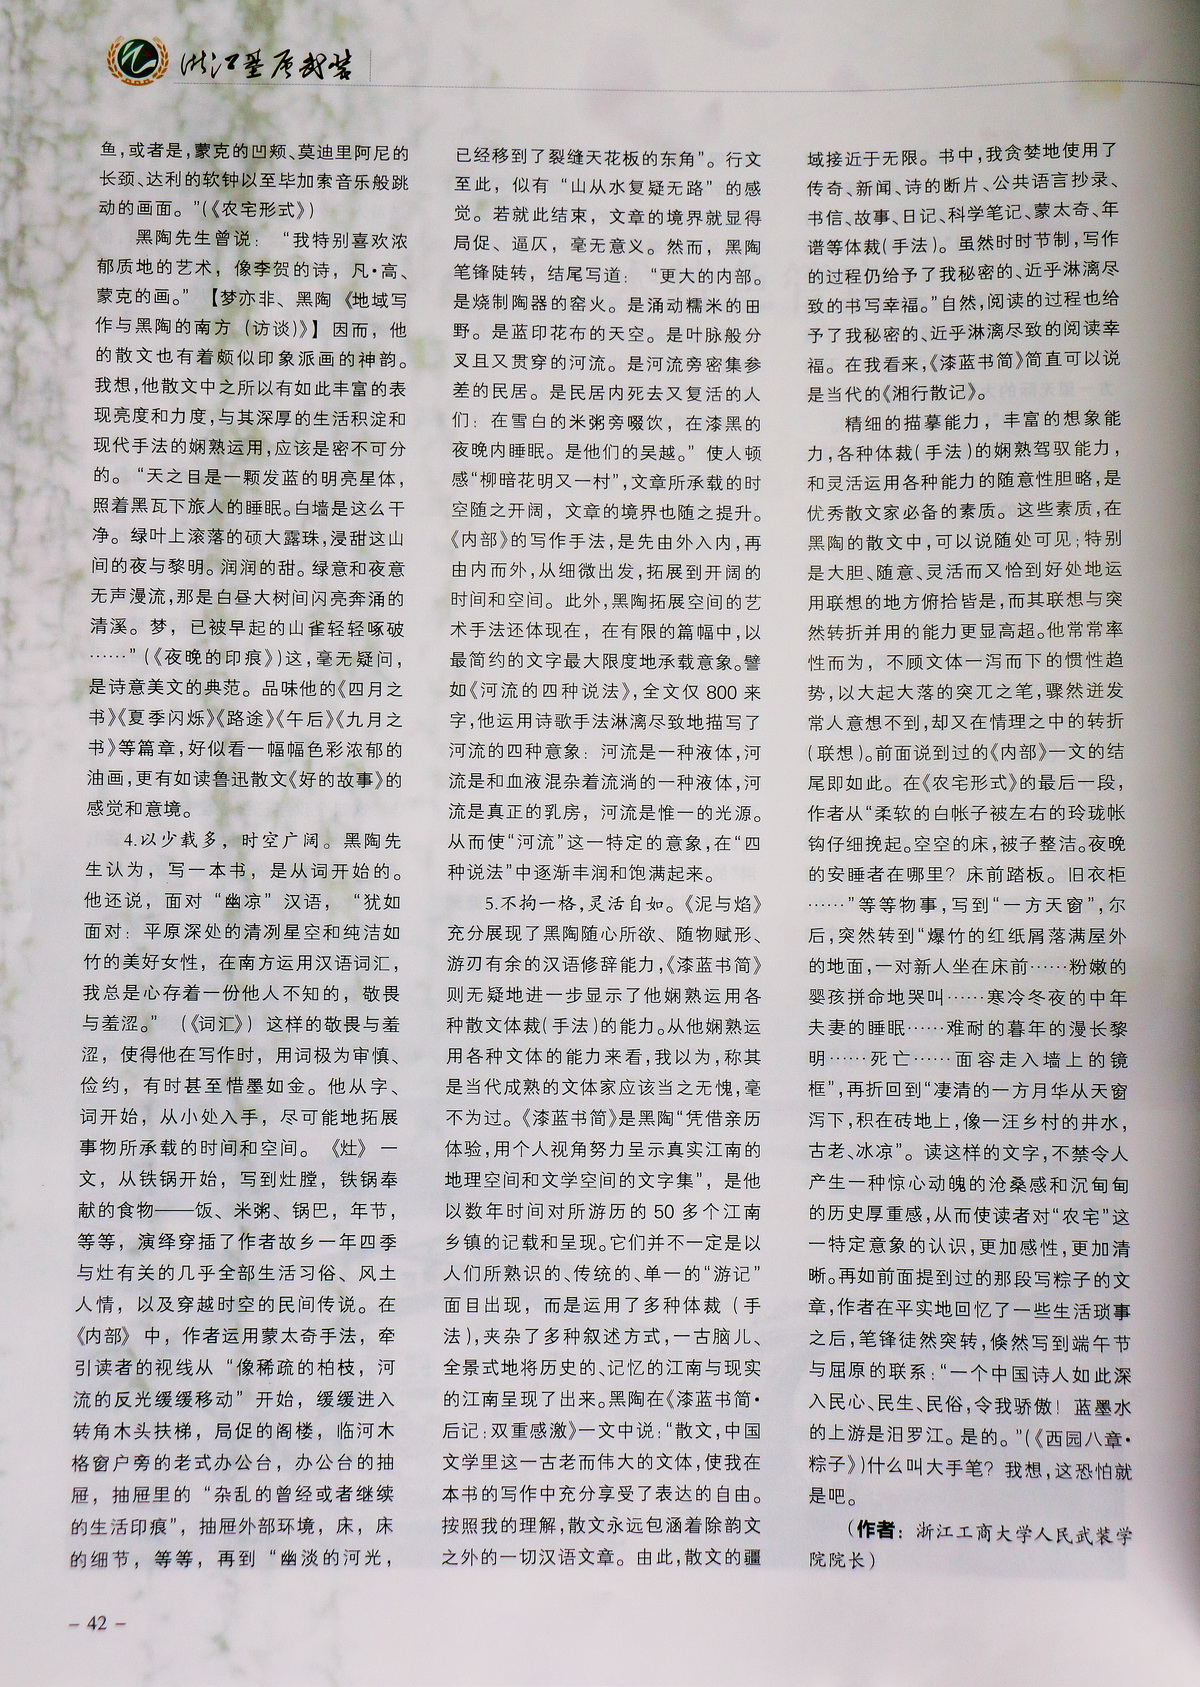 浙江基层武装
鱼,或者是,蒙克的凹颊、莫迪里阿尼的
长颈、达利的软钟以至毕加索音乐般跳
动的画面。”(《农宅形式》)
黑陶先生曾说：“我特别喜欢浓
郁质地的艺术，像李贺的诗，凡·高、
蒙克的画。”【梦亦非、黑陶《地域写
作与黑陶的南方（访谈）》】因而，他
的散文也有着颇似印象派画的神韵。
我想,他散文中之所以有如此丰富的表
现亮度和力度,与其深厚的生活积淀和
现代手法的娴熟运用,应该是密不可分
的。“天之目是一颗发蓝的明亮星体，
照着黑瓦下旅人的睡眠。白墙是这么干
净。绿叶上滚落的硕大露珠,浸甜这山
间的夜与黎明。润润的甜。绿意和夜意
无声漫流,那是白昼大树间闪亮奔涌的
清溪。梦，已被早起的山雀轻轻啄破
……”(《夜晚的印痕》)这,毫无疑问，
是诗意美文的典范。品味他的《四月之
书》《夏季闪烁》《路途》《午后》《九月之
书》等篇章,好似看一幅幅色彩浓郁的
油画,更有如读鲁迅散文《好的故事》的
感觉和意境。
4.以少载多，时空广阔。黑陶先
生认为，写一本书，是从词开始的。
他还说，面对“幽凉”汉语，“犹如
面对：平原深处的清冽星空和纯洁如
竹的美好女性，在南方运用汉语词汇，
我总是心存着一份他人不知的，敬畏
与羞涩。”（《词汇》）这样的敬畏与羞
涩，使得他在写作时，用词极为审慎、
俭约，有时甚至惜墨如金。他从字、
词开始，从小处入手，尽可能地拓展
事物所承载的时间和空间。《灶》一
文，从铁锅开始，写到灶膛，铁锅奉
献的食物——饭、米粥、锅巴，年节，
等等，演绎穿插了作者故乡一年四季
与灶有关的几乎全部生活习俗、风土
人情，以及穿越时空的民间传说。在
《内部》中，作者运用蒙太奇手法，牵
引读者的视线从“像稀疏的柏枝，河
流的反光缓缓移动”开始，缓缓进入
转角木头扶梯，局促的阁楼，临河木
格窗户旁的老式办公台，办公台的抽
屉，抽屉里的“杂乱的曾经或者继续
的生活印痕”，抽屉外部环境，床，床
的细节，等等，再到“幽淡的河光，
已经移到了裂缝天花板的东角”。行文
至此，似有“山从水复疑无路”的感
觉。若就此结束，文章的境界就显得
局促、逼仄，毫无意义。然而，黑陶
笔锋陡转，结尾写道：“更大的内部。
是烧制陶器的窑火。是涌动糯米的田
野。是蓝印花布的天空。是叶脉般分
叉且又贯穿的河流。是河流旁密集参
差的民居。是民居内死去又复活的人
们：在雪白的米粥旁啜饮，在漆黑的
夜晚内睡眠。是他们的吴越。”使人顿
感“柳暗花明又一村”,文章所承载的时
空随之开阔，文章的境界也随之提升。
《内部》的写作手法,是先由外入内,再
由内而外,从细微出发,拓展到开阔的
时间和空间。此外,黑陶拓展空间的艺
术手法还体现在，在有限的篇幅中,以
最简约的文字最大限度地承载意象。譬
如《河流的四种说法》,全文仅 800 来
字,他运用诗歌手法淋漓尽致地描写了
河流的四种意象：河流是一种液体,河
流是和血液混杂着流淌的一种液体,河
流是真正的乳房，河流是惟一的光源。
从而使“河流”这一特定的意象,在“四
种说法”中逐渐丰润和饱满起来。
5.不拘一格,灵活自如。《泥与焰》
充分展现了黑陶随心所欲、随物赋形、
游刃有余的汉语修辞能力,《漆蓝书简》
则无疑地进一步显示了他娴熟运用各
种散文体裁(手法)的能力。从他娴熟运
用各种文体的能力来看,我以为,称其
是当代成熟的文体家应该当之无愧,毫
不为过。《漆蓝书简》是黑陶“凭借亲历
体验,用个人视角努力呈示真实江南的
地理空间和文学空间的文字集”，是他
以数年时间对所游历的 50 多个江南
乡镇的记载和呈现。它们并不一定是以
人们所熟识的、传统的、单一的“游记”
面目出现，而是运用了多种体裁（手
法）,夹杂了多种叙述方式,一古脑儿、
全景式地将历史的、记忆的江南与现实
的江南呈现了出来。黑陶在《漆蓝书简·
后记:双重感激》一文中说:“散文,中国
文学里这一古老而伟大的文体,使我在
本书的写作中充分享受了表达的自由。
按照我的理解,散文永远包涵着除韵文
之外的一切汉语文章。由此,散文的疆
域接近于无限。书中,我贪婪地使用了
传奇、新闻、诗的断片、公共语言抄录、
书信、故事、日记、科学笔记、蒙太奇、年
谱等体裁(手法)。虽然时时节制,写作
的过程仍给予了我秘密的、近乎淋漓尽
致的书写幸福。”自然,阅读的过程也给
予了我秘密的、近乎淋漓尽致的阅读幸
福。在我看来,《漆蓝书简》简直可以说
是当代的《湘行散记》。
精细的描摹能力，丰富的想象能
力,各种体裁(手法)的娴熟驾驭能力，
和灵活运用各种能力的随意性胆略,是
优秀散文家必备的素质。这些素质,在
黑陶的散文中,可以说随处可见;特别
是大胆、随意、灵活而又恰到好处地运
用联想的地方俯拾皆是,而其联想与突
然转折并用的能力更显高超。他常常率
性而为，不顾文体一泻而下的惯性趋
势,以大起大落的突兀之笔,骤然迸发
常人意想不到,却又在情理之中的转折
(联想)。前面说到过的《内部》一文的结
尾即如此。在《农宅形式》的最后一段，
作者从“柔软的白帐子被左右的玲珑帐
钩仔细挽起。空空的床,被子整洁。夜晚
的安睡者在哪里？床前踏板。旧衣柜
……”等等物事,写到“一方天窗”,尔
后,突然转到“爆竹的红纸屑落满屋外
的地面,一对新人坐在床前……粉嫩的
婴孩拼命地哭叫……寒冷冬夜的中年
夫妻的睡眠……难耐的暮年的漫长黎
明……死亡……面容走入墙上的镜
框”,再折回到“凄清的一方月华从天窗
泻下,积在砖地上,像一汪乡村的井水，
古老、冰凉”。读这样的文字,不禁令人
产生一种惊心动魄的沧桑感和沉甸甸
的历史厚重感,从而使读者对“农宅”这
一特定意象的认识,更加感性,更加清
晰。再如前面提到过的那段写粽子的文
章,作者在平实地回忆了一些生活琐事
之后,笔锋徒然突转,倏然写到端午节
与屈原的联系:“一个中国诗人如此深
入民心、民生、民俗,令我骄傲！蓝墨水
的上游是汨罗江。是的。”(《西园八章·
粽子》)什么叫大手笔？我想,这恐怕就
是吧。
（作者：浙江工商大学人民武装学
院院长）
- 42 -